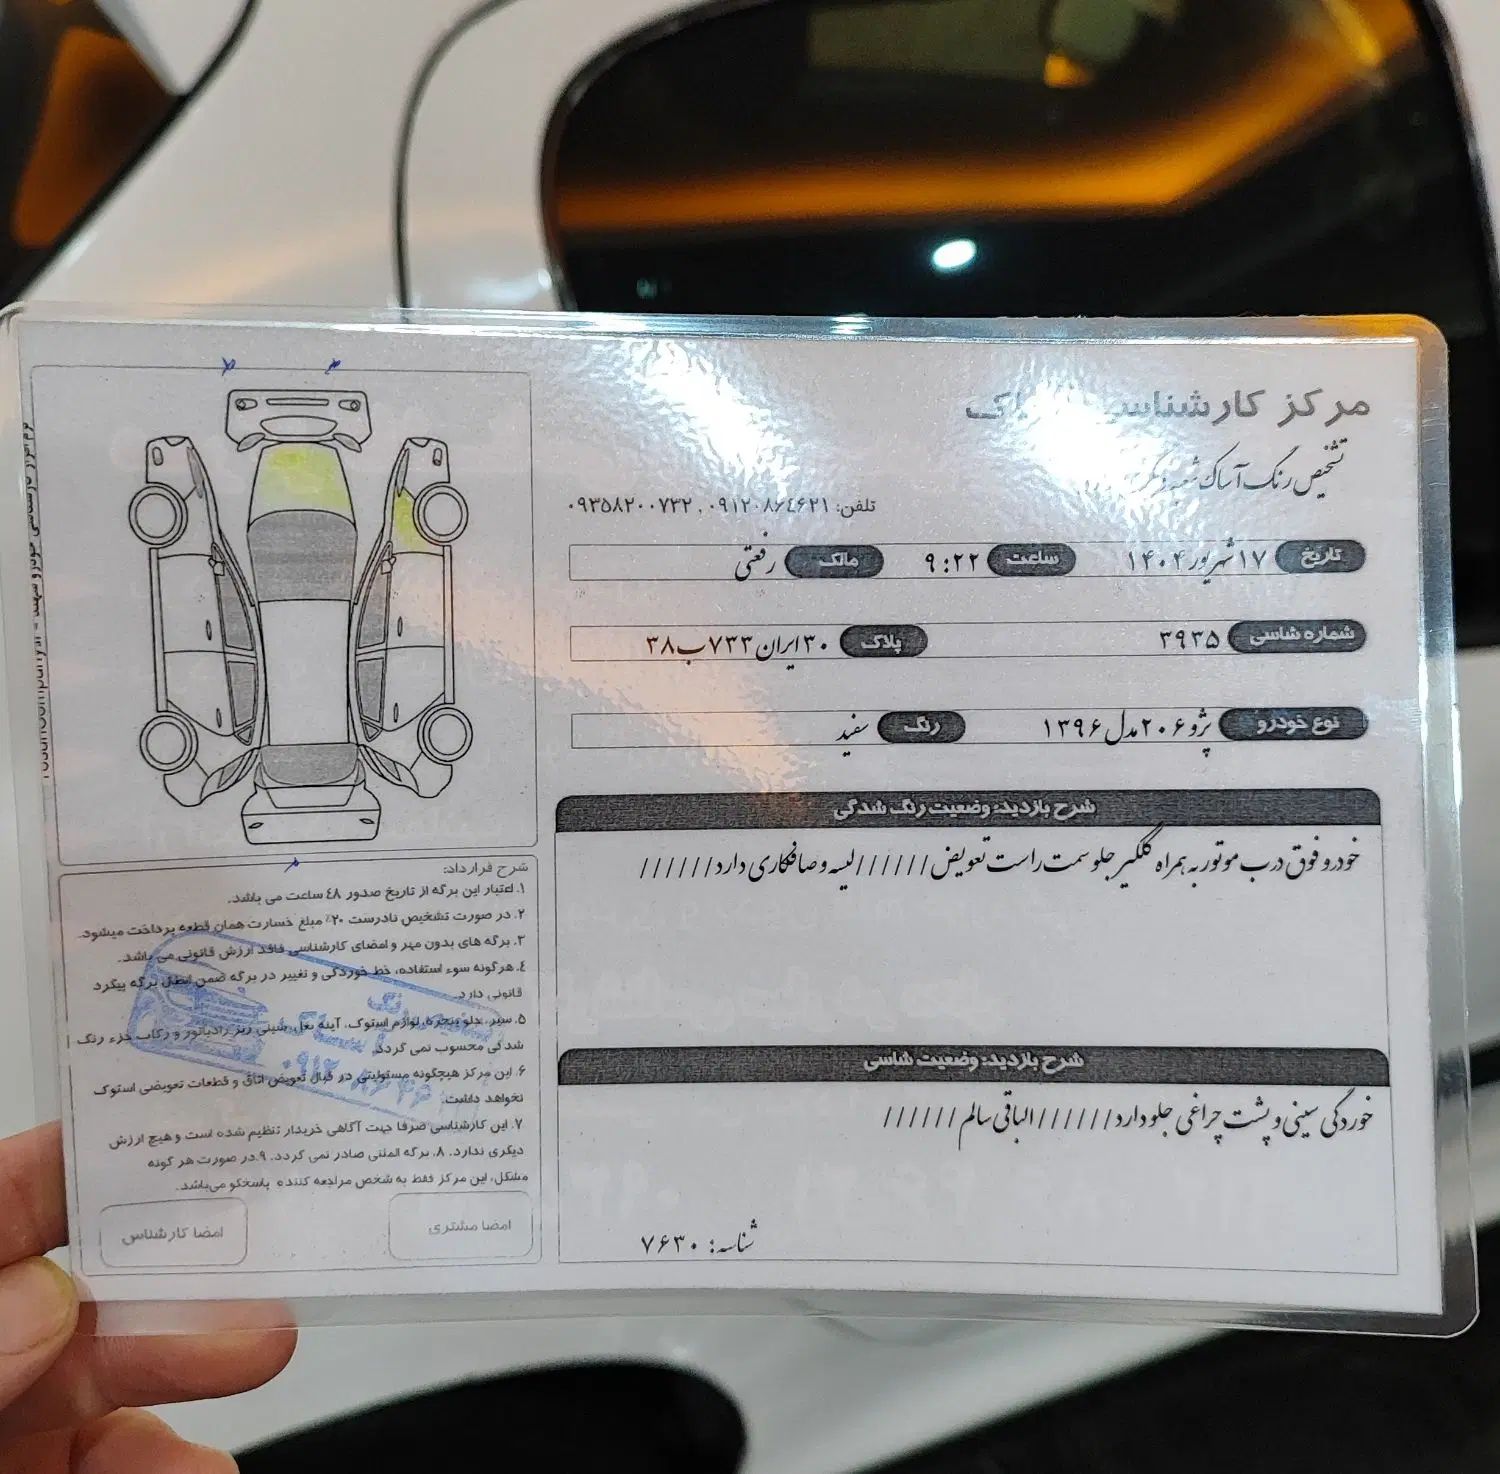 مرکز کارشناسی
تشخیص رنگ آساک شعبه
تلفن: ۰۹۱۲۰۸۶٤٦٢١ , ۰۹۳۵۸۲۰۰۷۳۲
تاریخ ۱۷ شهریور ۱۴۰۴ ساعت ۹:۲۲ مالک رفعتی
شماره شاسی ۳۹۳۵ پلاک ۳۰ ایران ۷۳۳ ب ۳۸
نوع خودرو پژو ۲۰۶ مدل ۱۳۹۶ رنگ سفید
شرح بازدید: وضعیت رنگ شدگی
خودرو فوق درب موتور به همراه گلگیر جلو سمت راست تعویض //////لیسه و صافکاری دارد//////
شرح بازدید: وضعیت شاسی
خوردگی سینی و پشت چراغی جلو دارد//////الباقی سالم//////
شناسه: ۷۶۳۰
شرح قرارداد:
۱. اعتبار این برگه از تاریخ صدور ٤٨ ساعت می باشد.
۲. در صورت تشخیص نادرست ۲۰٪ مبلغ خسارت همان قطعه پرداخت میشود.
۳. برگه های بدون مهر و امضای کارشناسی فاقد ارزش قانونی می باشد.
٤. هرگونه سوء استفاده، خط خوردگی و تغییر در برگه ضمن ابطال برگه پیگرد
قانونی دارد.
۵. سپر، جلو پنجره، لوازم استوک، آینه بغل، سینی زیر رادیاتور و رکاب جزء رنگ
شدگی محسوب نمی گردد.
۶. این مرکز هیچگونه مسئولیتی در قبال تعویض اتاق و قطعات تعویضی استوک
نخواهد داشت.
۷. این کارشناسی صرفا جهت آگاهی خریدار تنظیم شده است و هیچ ارزش
دیگری ندارد. ۸. برگه المثنی صادر نمی گردد. ۹. در صورت هر گونه
مشکل، این مرکز فقط به شخص مراجعه کننده پاسخگو می‌باشد.
امضا مشتری
امضا کارشناس